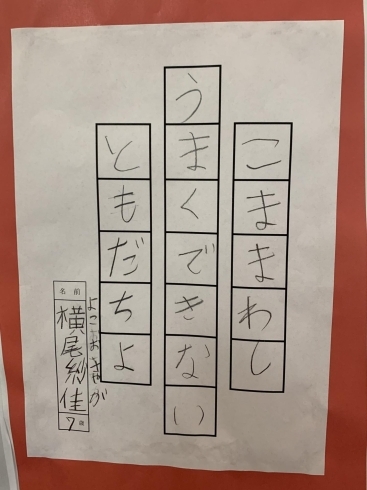 こままわし
うまくできない
ともだちよ
名前
横尾紗佳
よこおさやか
7歳